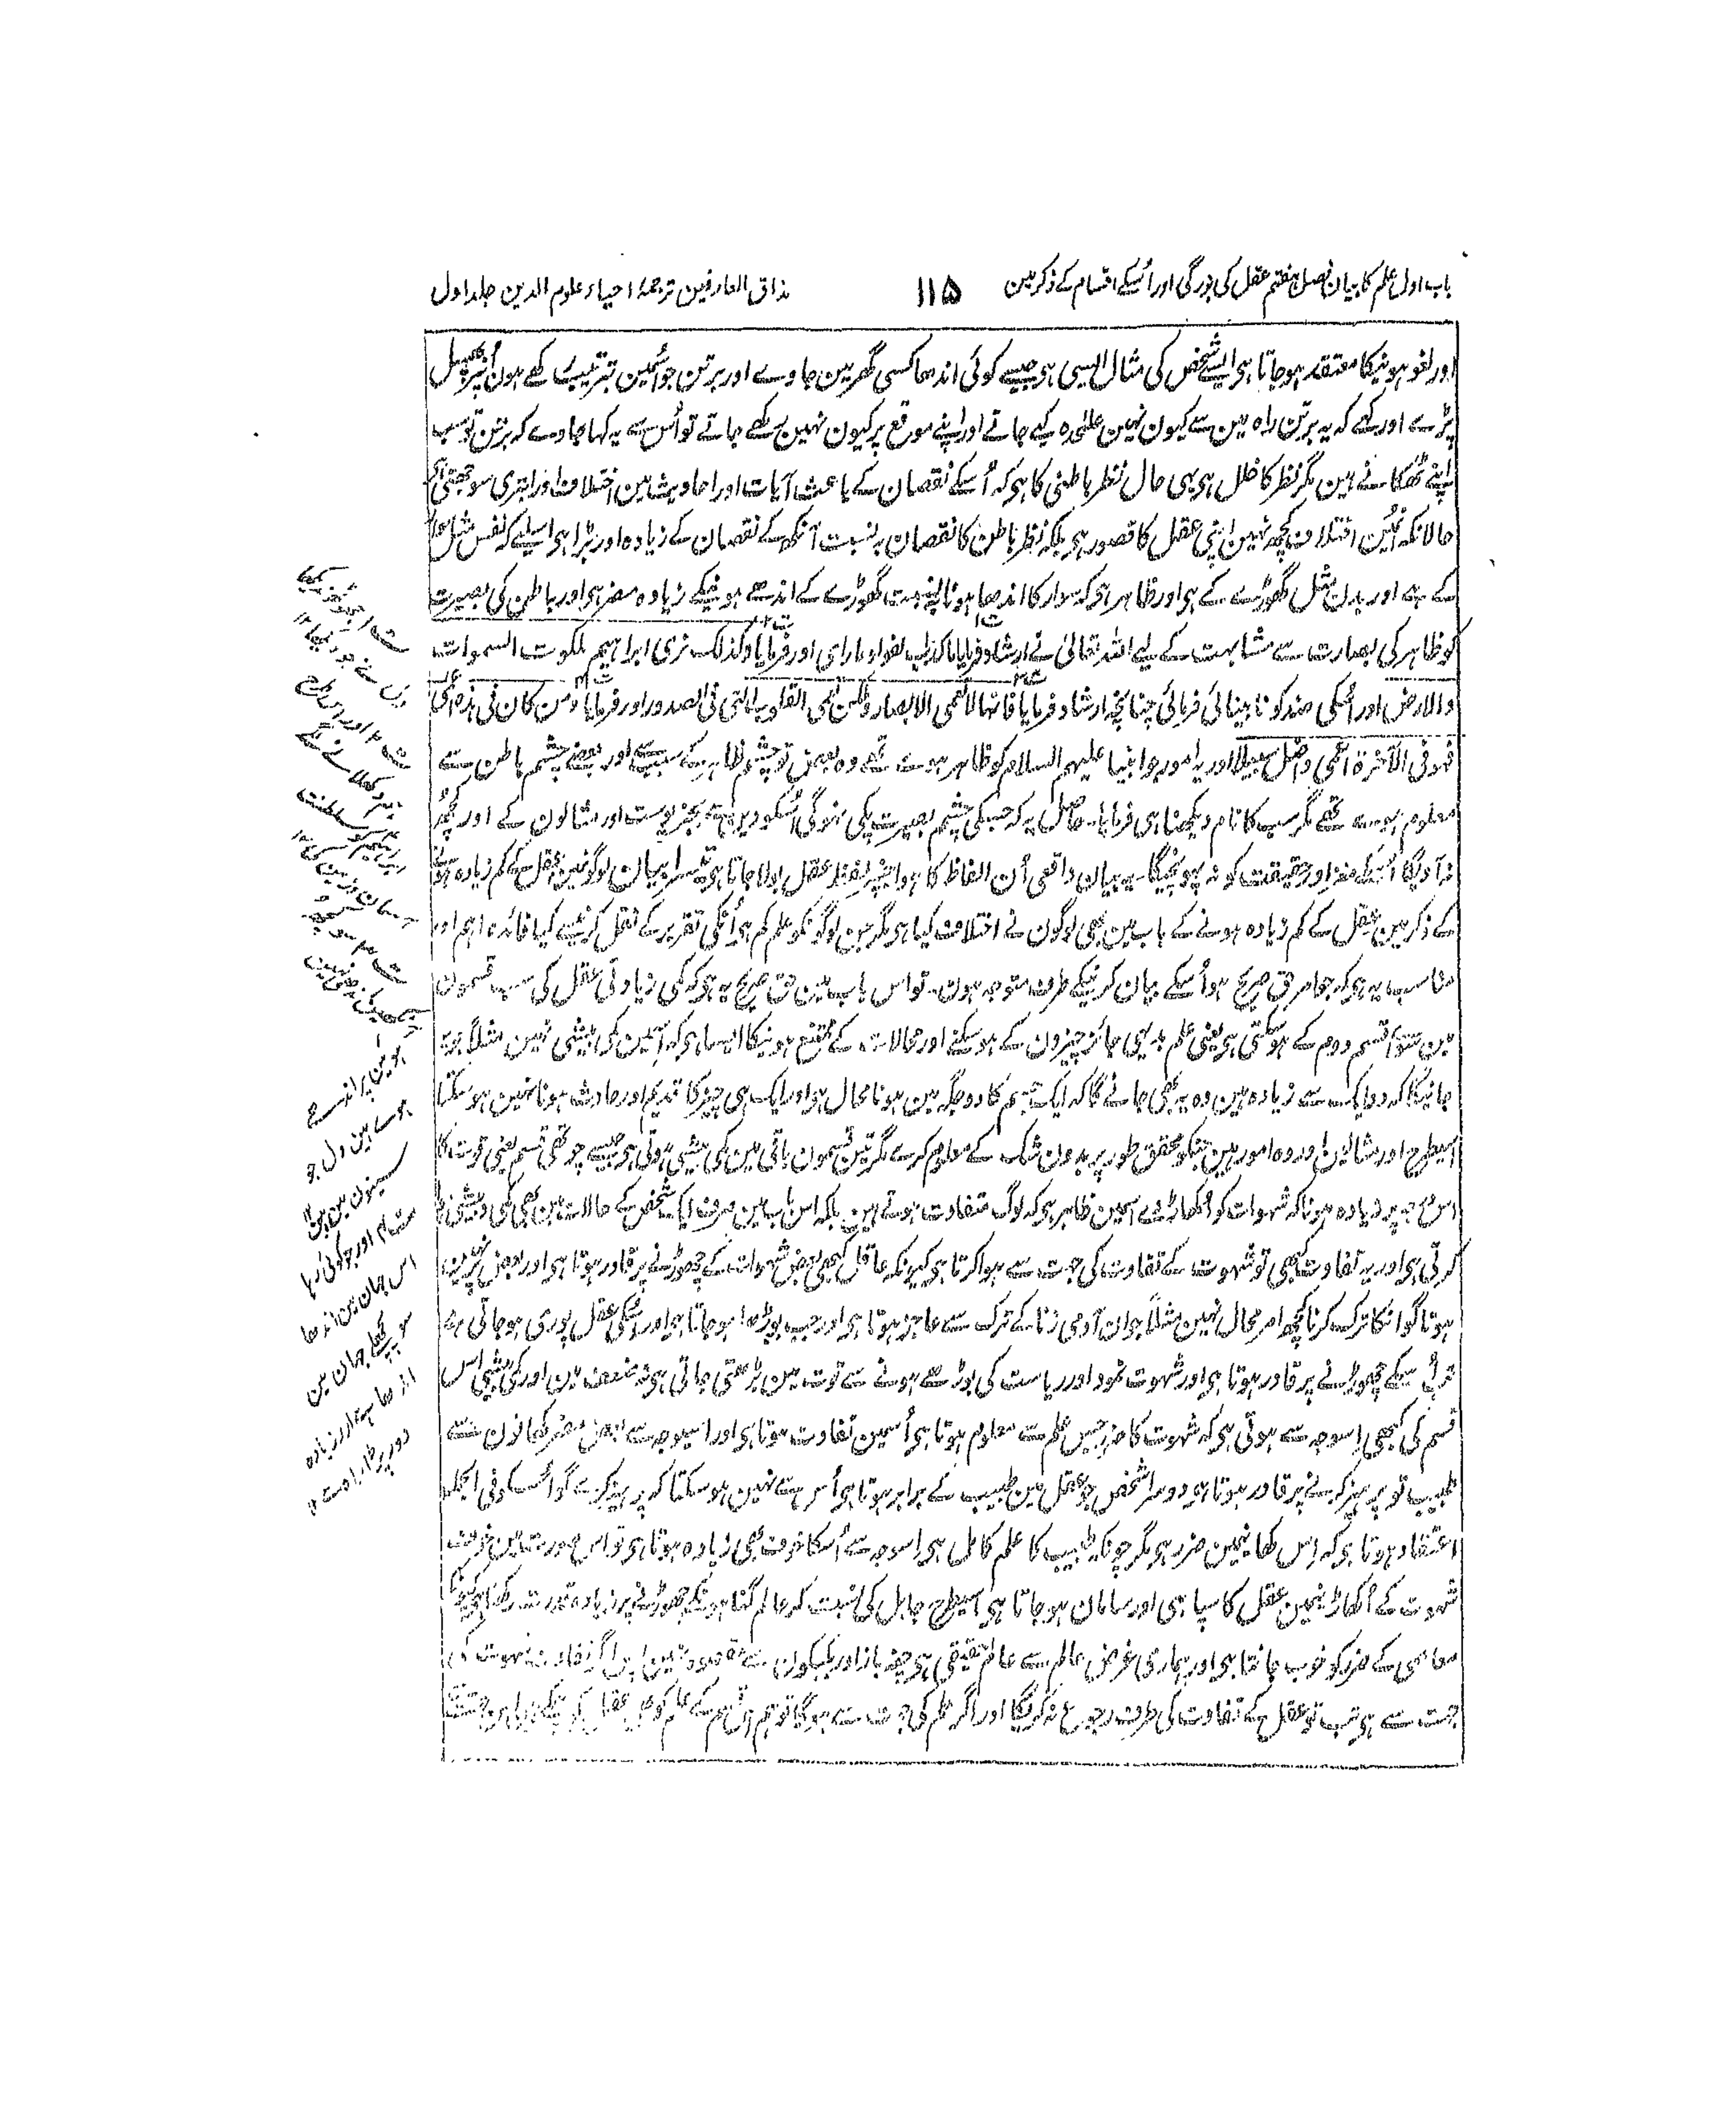 باب اول علم کا بیان فصل ہفتم عقل کی بزرگی اور اُسکے اقسام کے ذکر مین
۱۱۵
مذاق العارفین ترجمۂ احیاء علوم الدین جلد اول
اور لغو ہونیکا معتقد ہو جاتا ہی ایسے شخص کی مثال ایسی ہی جیسے کوئی اندھا کسی گھر مین جاوے اور برتن جو اُسمین بترتیب رکھے ہون اُنپر پھسل
پڑے اور کہے کہ یہ برتن راہ مین سے کیون نہین علٰحدہ کیے جاتے اور اپنے موقع پر کیون نہین رکھے جاتے تو اُس سے یہ کہا جاوے کہ برتن تو سب
اپنے ٹھکانے ہین مگر نظر کا خلل ہی یہی حال نظر باطنی کا ہی کہ اُسکے نقصان کے باعث آیات اور احادیث مین اختلاف اور ابتری سوجھتی ہی
حالانکہ اُنمین اختلاف کچھ نہین اپنی عقل کا قصور ہی بلکہ نظر باطن کا نقصان بہ نسبت آنکھ کے نقصان کے زیادہ اور بڑا ہی اسلیے کہ نفس مثل سوار
کے ہے اور بدن مثل گھوڑے کے ہی اور ظاہر ہی کہ سوار کا اندھا ہونا بنسبت گھوڑے کے اندھے ہونیکے زیادہ مضر ہی اور باطن کی بصیرت
کو ظاہر کی بصارت سے مشابہت کے لیے اللہ تعالیٰ نے ارشاد فرمایا ماکذب الفواد ما رای اور فرمایا وکذلک نری ابراہیم ملکوت السموات
والارض اور اُسکی ضد کو نابینائی فرمائی چنانچہ ارشاد فرمایا فانہا لا تعمی الابصار ولکن تعمی القلوب التی فی الصدور اور فرمایا ومن کان فی ہذہ اعمی
فہو فی الآخرۃ اعمی واضل سبیلا اور یہ امور جو انبیا علیہم السلام کو ظاہر ہوے تھے وہ بعض تو چشم ظاہر کے سبب سے اور بعضے چشم باطن سے
معلوم ہوے تھے مگر سب کا نام دیکھنا ہی فرمایا۔ حاصل یہ کہ جسکی چشم بصیرت پکی نہوگی اُسکو دین مین سے بجز پوست اور مثالون کے اور کچھ
نہ آویگا اُسکے مغز اور حقیقت کو نہ پہونچیگا۔ یہ بیان واقعی اُن الفاظ کا ہوا جنپر لفظ عقل بولا جاتا ہی تیسرا بیان لوگونمین عقل کے کم زیادہ ہونے
کے ذکر مین عقل کے کم زیادہ ہونے کے باب مین بھی لوگون نے اختلاف کیا ہی مگر جن لوگونکو علم کم ہی اُنکی تقریر کے نقل کرنیسے کیا فائدہ اہم اور
مناسب یہ ہی کہ جو امر حق صریح ہو اُسکے بیان کرنیکے طرف متوجہ ہون۔ تو اس باب مین حق صریح یہ ہی کہ کمی زیادتی عقل کی سب قسمون
مین سوا قسم دوم کے ہو سکتی ہی یعنی علم بدیہی جائز چیزون کے ہو سکنے اور محالات کے ممتنع ہونیکا ایسا ہی کہ اُسمین کمی بیشی نہین مثلاً جو یہ
جانیگا کہ دو ایک سے زیادہ ہین وہ یہ بھی جانے گا کہ ایک جسم کا دو جگہ مین ہونا محال ہی اور ایک ہی چیز کا قدیم اور حادث ہونا نہین ہو سکتا
اسیطرح اور مثالین اور وہ امور ہین جنکو محقق طور پر بدون شک کے معلوم کرے مگر تین قسمون باقی مین کمی بیشی ہوتی ہی جیسے چوتھی قسم یعنی قوت کا
اس درجہ پر زیادہ ہونا کہ شہوات کو اُکھاڑ دے اسمین ظاہر ہی کہ لوگ متفاوت ہوتے ہین بلکہ اس باب مین صرف ایک شخص کے حالات مین بھی کمی و بیشی ہوا
کرتی ہی اور یہ تفاوت کبھی تو شہوت کے تفاوت کی جہت سے ہوا کرتا ہی کیونکہ عاقل کبھی بعض شہوات کے چھوڑنے پر قادر ہوتا ہی اور بعض پر نہین
ہوتا گو انکا ترک کرنا کچھ امر محال نہین مثلاً جوان آدمی زنا کے ترک سے عاجز ہوتا ہی اور جب بوڑھا ہو جاتا ہی اور اُسکی عقل پوری ہو جاتی ہے
تو اُسکے چھوڑنے پر قادر ہوتا ہی اور شہوت نمود اور ریاست کی بوڑھے ہونے سے قوت مین بڑھتی جاتی ہی نہ ضعف مین اور کمی بیشی اس
قسم کی کبھی اسوجہ سے ہوتی ہی کہ شہوت کا ضرر جس علم سے معلوم ہوتا ہی اُسمین تفاوت ہوتا ہی اور اسیوجہ سے بعض مضر کھانون سے
طبیب تو پرہیز کرنے پر قادر ہوتا ہی دوسرا شخص جو عقل مین طبیب کے برابر ہوتا ہی اُس سے نہین ہو سکتا کہ پرہیز کرے گو اُسکو فی الجملہ
اعتقاد ہوتا ہی کہ اِس کھانیمین ضرر ہی مگر چونکہ طبیب کا علم کامل ہی اسوجہ سے اُسکا خوف بھی زیادہ ہوتا ہی تو اس صورت مین خوف
شہوت کے اُکھاڑنیمین عقل کا سپاہی اور سامان ہو جاتا ہی اسیطرح جاہل کی نسبت کر عالم گناہونکے چھوڑنے پر زیادہ قدرت رکھتا ہی کیونکہ
معاصی کے ضرر کو خوب جانتا ہی اور ہماری غرض عالم سے عالم حقیقی ہی جبہ باز اور بکبکون سے مقصود نہین پس اگر تفاوت شہوت کی
جہت سے ہی تب تو عقل کے تفاوت کی طرف رجوع نہ کریگا اور اگر علم کی جہت سے ہوگا تو ہم اس قسم کے علم کو بھی عقل کہ چکے ہین
دل نے جو دیکھا ۱۲
اور اسی طرح
ابراہیم کو سلطنت
آسمان و زمین کی ۱۲
ہوے ہین دل جو
سینون مین ہین ۱۲
اور جو کوئی رہا
اس جہان مین اندھا
سو پچھلے جہان مین
اندھا ہے اور زیادہ
دور پڑا راہ سے ۱۲